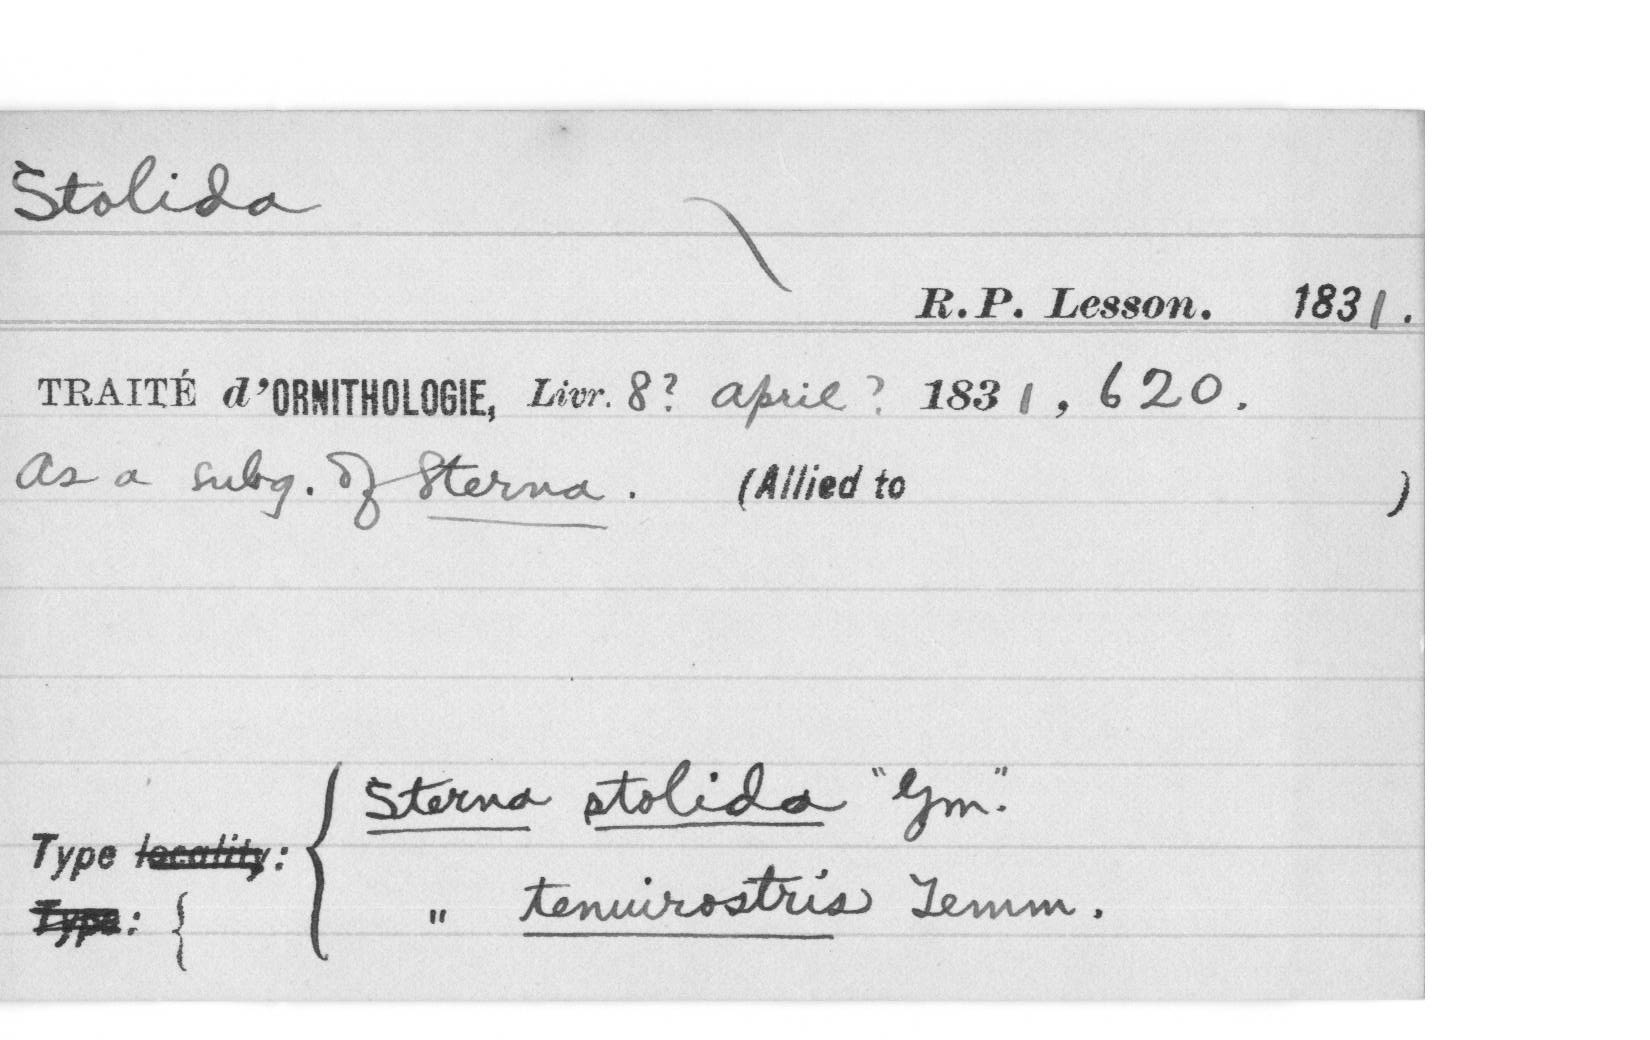 Stolida
R.P. Lesson. 1831.
TRAITÉ d'ORNITHOLOGIE, Livr. 8? April? 1831, 620.
As a subg. of Sterna. (Allied to )
Sterna stolida "Gm."
Type locality:
Type: {
" tenuirostris Temm.